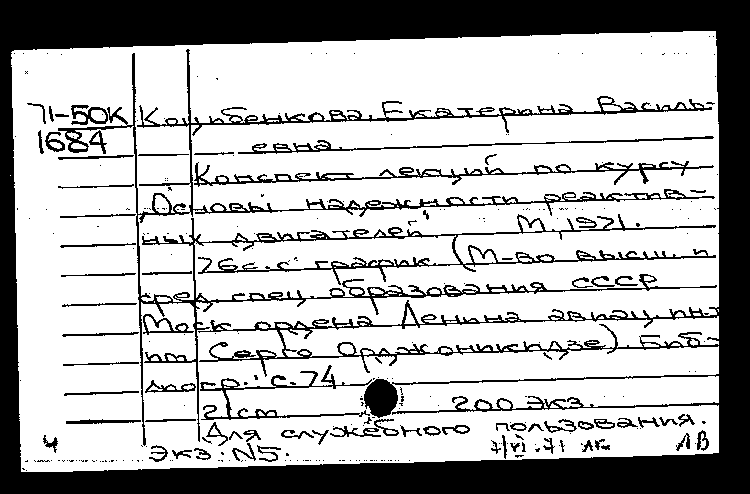 71-50К Коцюбенкова, Екатерина Василь-
1684 евна.
Конспект лекций по курсу
"Основы надежности реактив-
ных двигателей" М., 1971.
76с. с график. (М-во высш. и
сред. спец. образования СССР
Моск ордена Ленина авиац. ин-т
им Серго Орджоникидзе). Биб-
лиогр.: с. 74.
21 см 200 экз.
Для служебного пользования.
4 Экз. N5. 7/VI-71 АВ